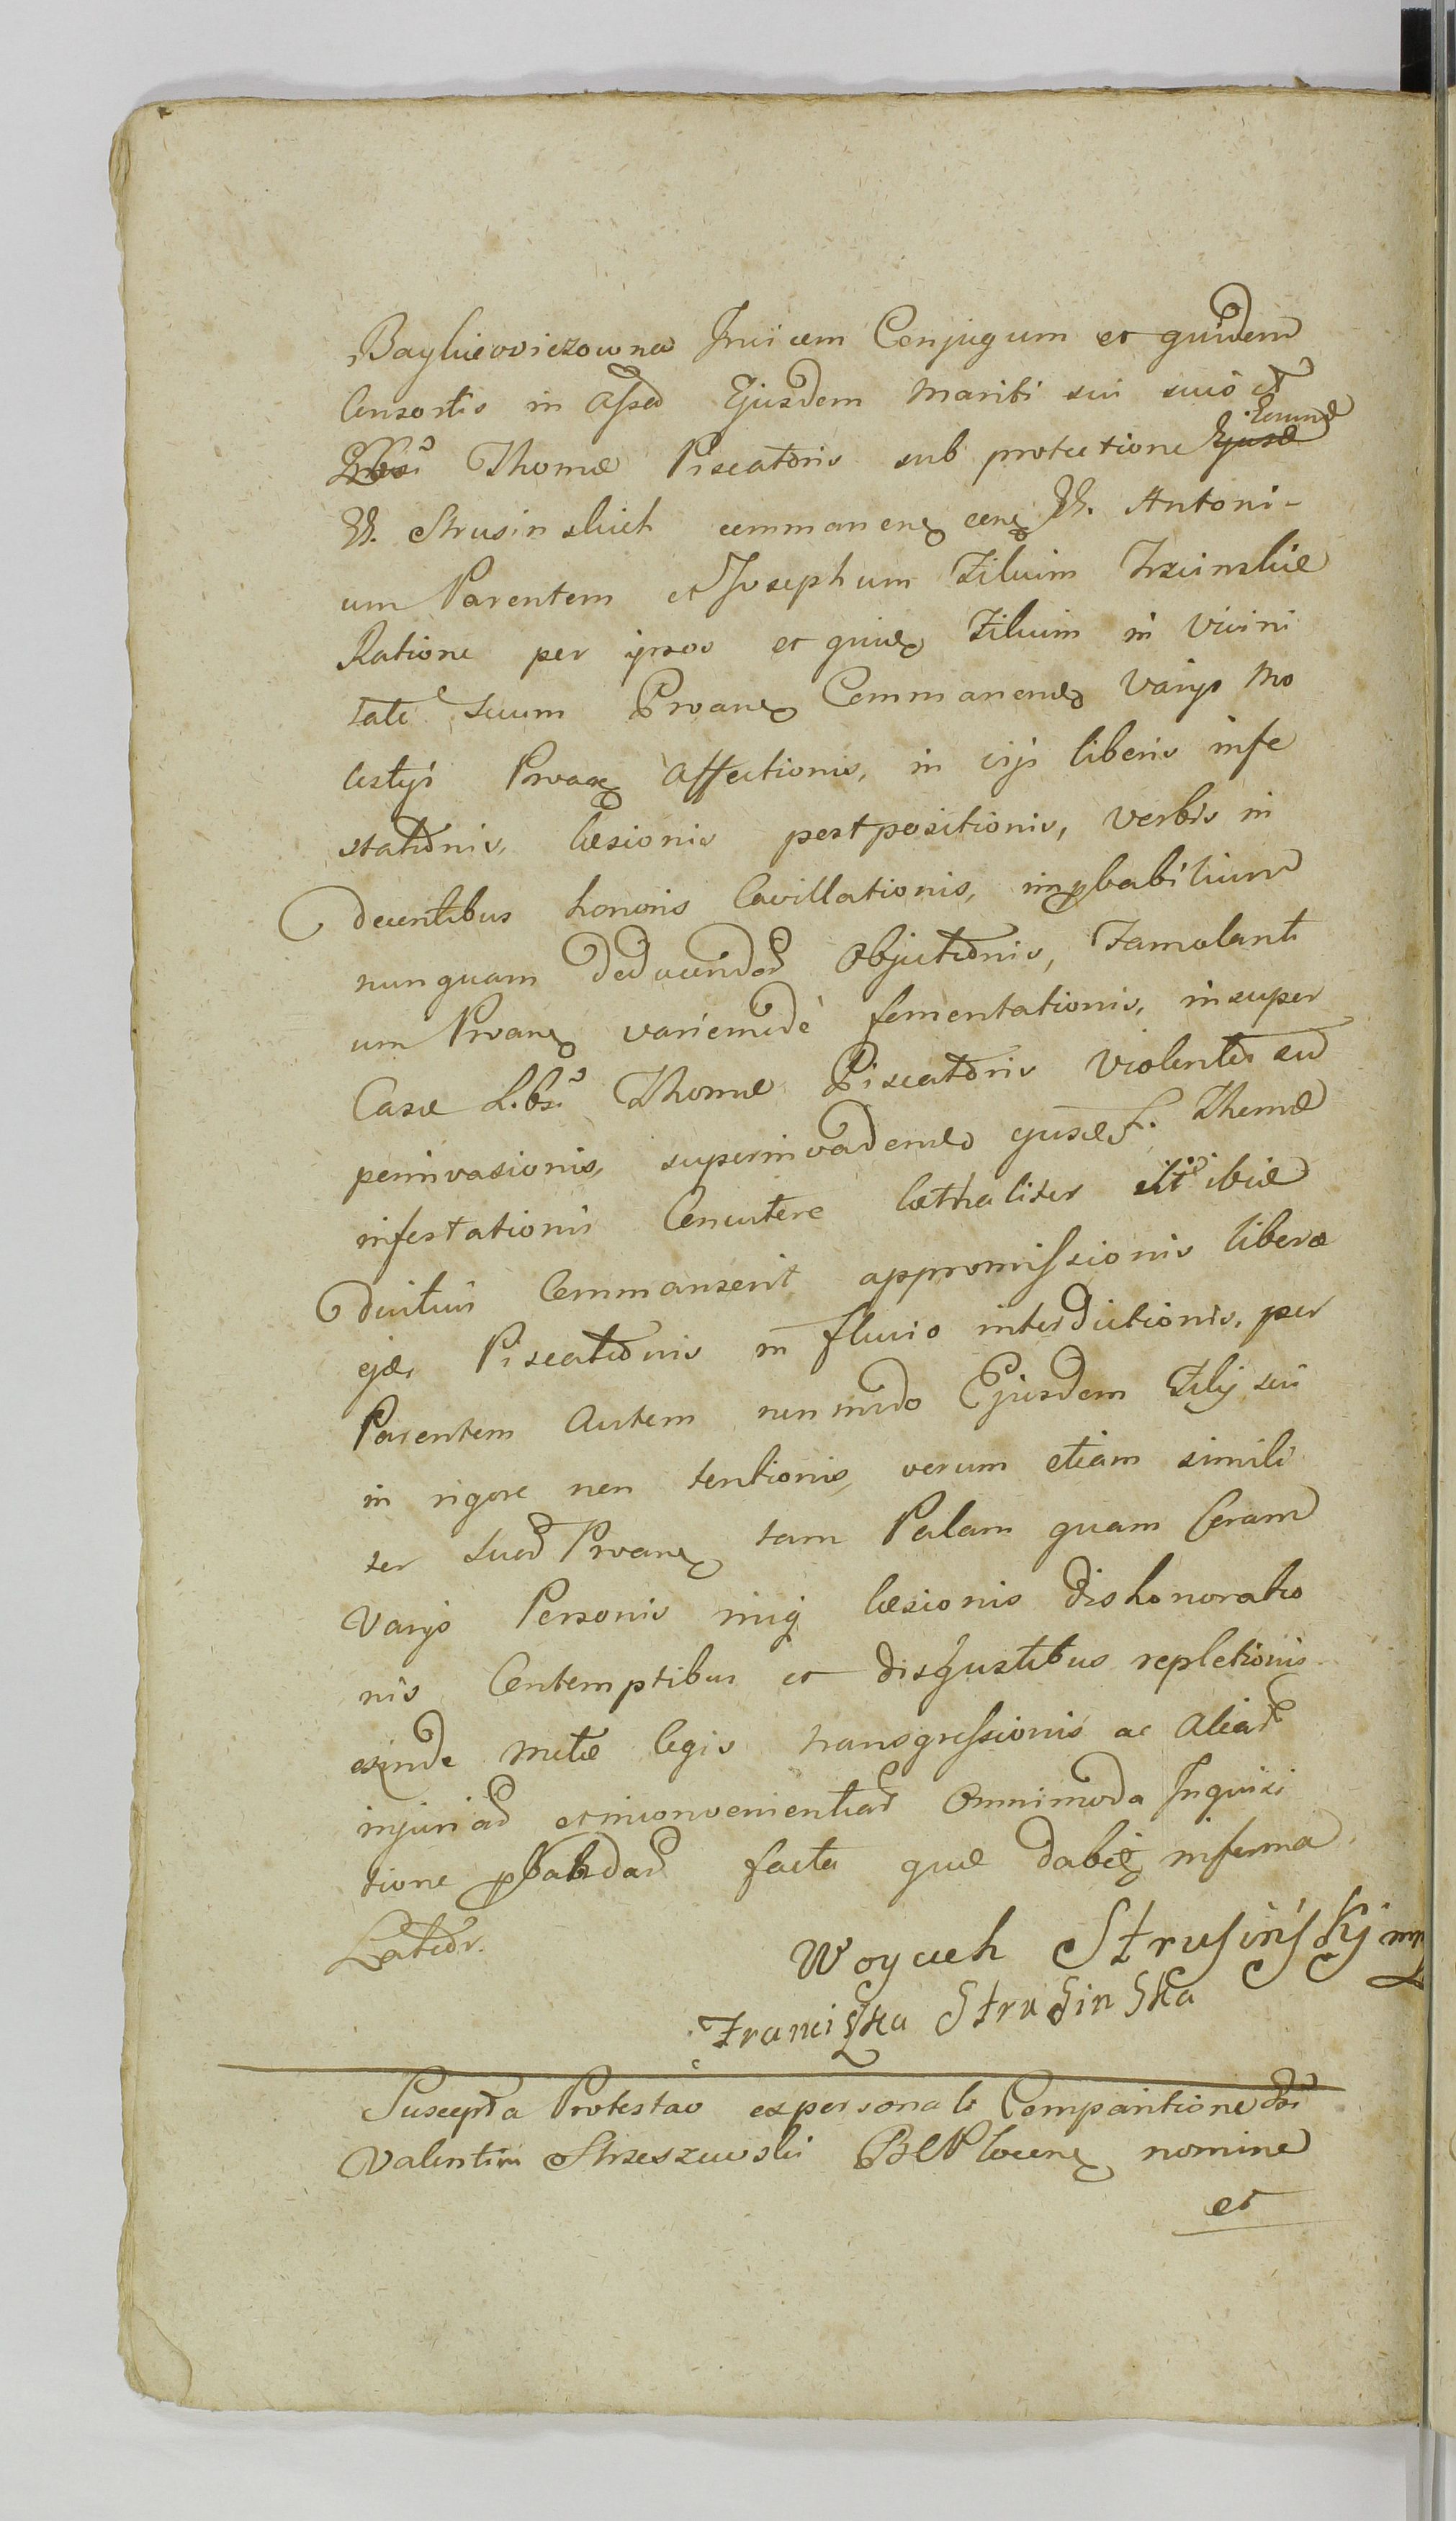 Baykieowiczowna Invicem Conjugum et quidem
Consortis in Assa Ejusdem Mariti sui suio et
Thomæ Piscatoris sub protectione Ejusd Eorund
W. Strusinskich commanen cen W. Antoni-
um Parentem et Josephum Filium Trzcinskie
Ratione per ipsos et quidem Filium in Vicini
tate Suum Proan Commanend Varys Mo
lestys Proan Affectionis, in vys liberis infe
stationis, læsionis postpositionis, verbis in
decentibus honoris Cavillationis, improbabilium
nunquam deducendor Objectionis, Famulanti
um Proan variemode fomentationis, insuper
Casæ Lbsi Thomæ Piscatoris Violenter su
perinvasionis, superinvadendo ejusd L. Thomæ
infestationis Concutere læthaliter ibid
diutius Commanserit appromissionis liberæ
ejus Piscationis in fluvio interdictionis, per
Parentem Autem non modo Ejusdem Filij sui
in rigore non tentionis, verum etiam simili
ter suor Proan tam Palam quam Coram
Varys Personis læsionis dishonoratio
nis Contemptibus et disgustibus repletionis
exinde Metæ legis transgressionis ac Aliar
injuriar et inconvenientiar Omnimoda Inquisi
tione probandar facta quæ dabit informa
Lationr.
Woyceh Strusinsky mp
Franciszka Strusinska
Suscepta Protestao ex personali Comparitione
Valentini Strzeszewski nomine
et